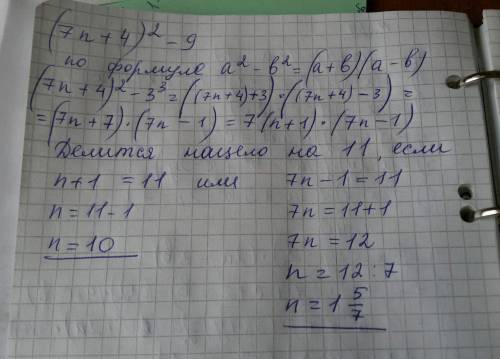 (7n+4)² - 9
по формуле a² - b² = (a+b)(a-b)
(7n+4)² - 3³ = ((7n+4)+3) · ((7n+4)-3) =
= (7n+7) · (7n-1) = 7(n+1) · (7n-1)
Делится нацело на 11, если
n+1 = 11 или 7n-1 = 11
n = 11-1 7n = 11+1
n = 10 7n = 12
n = 12 : 7
n = 1 5/7